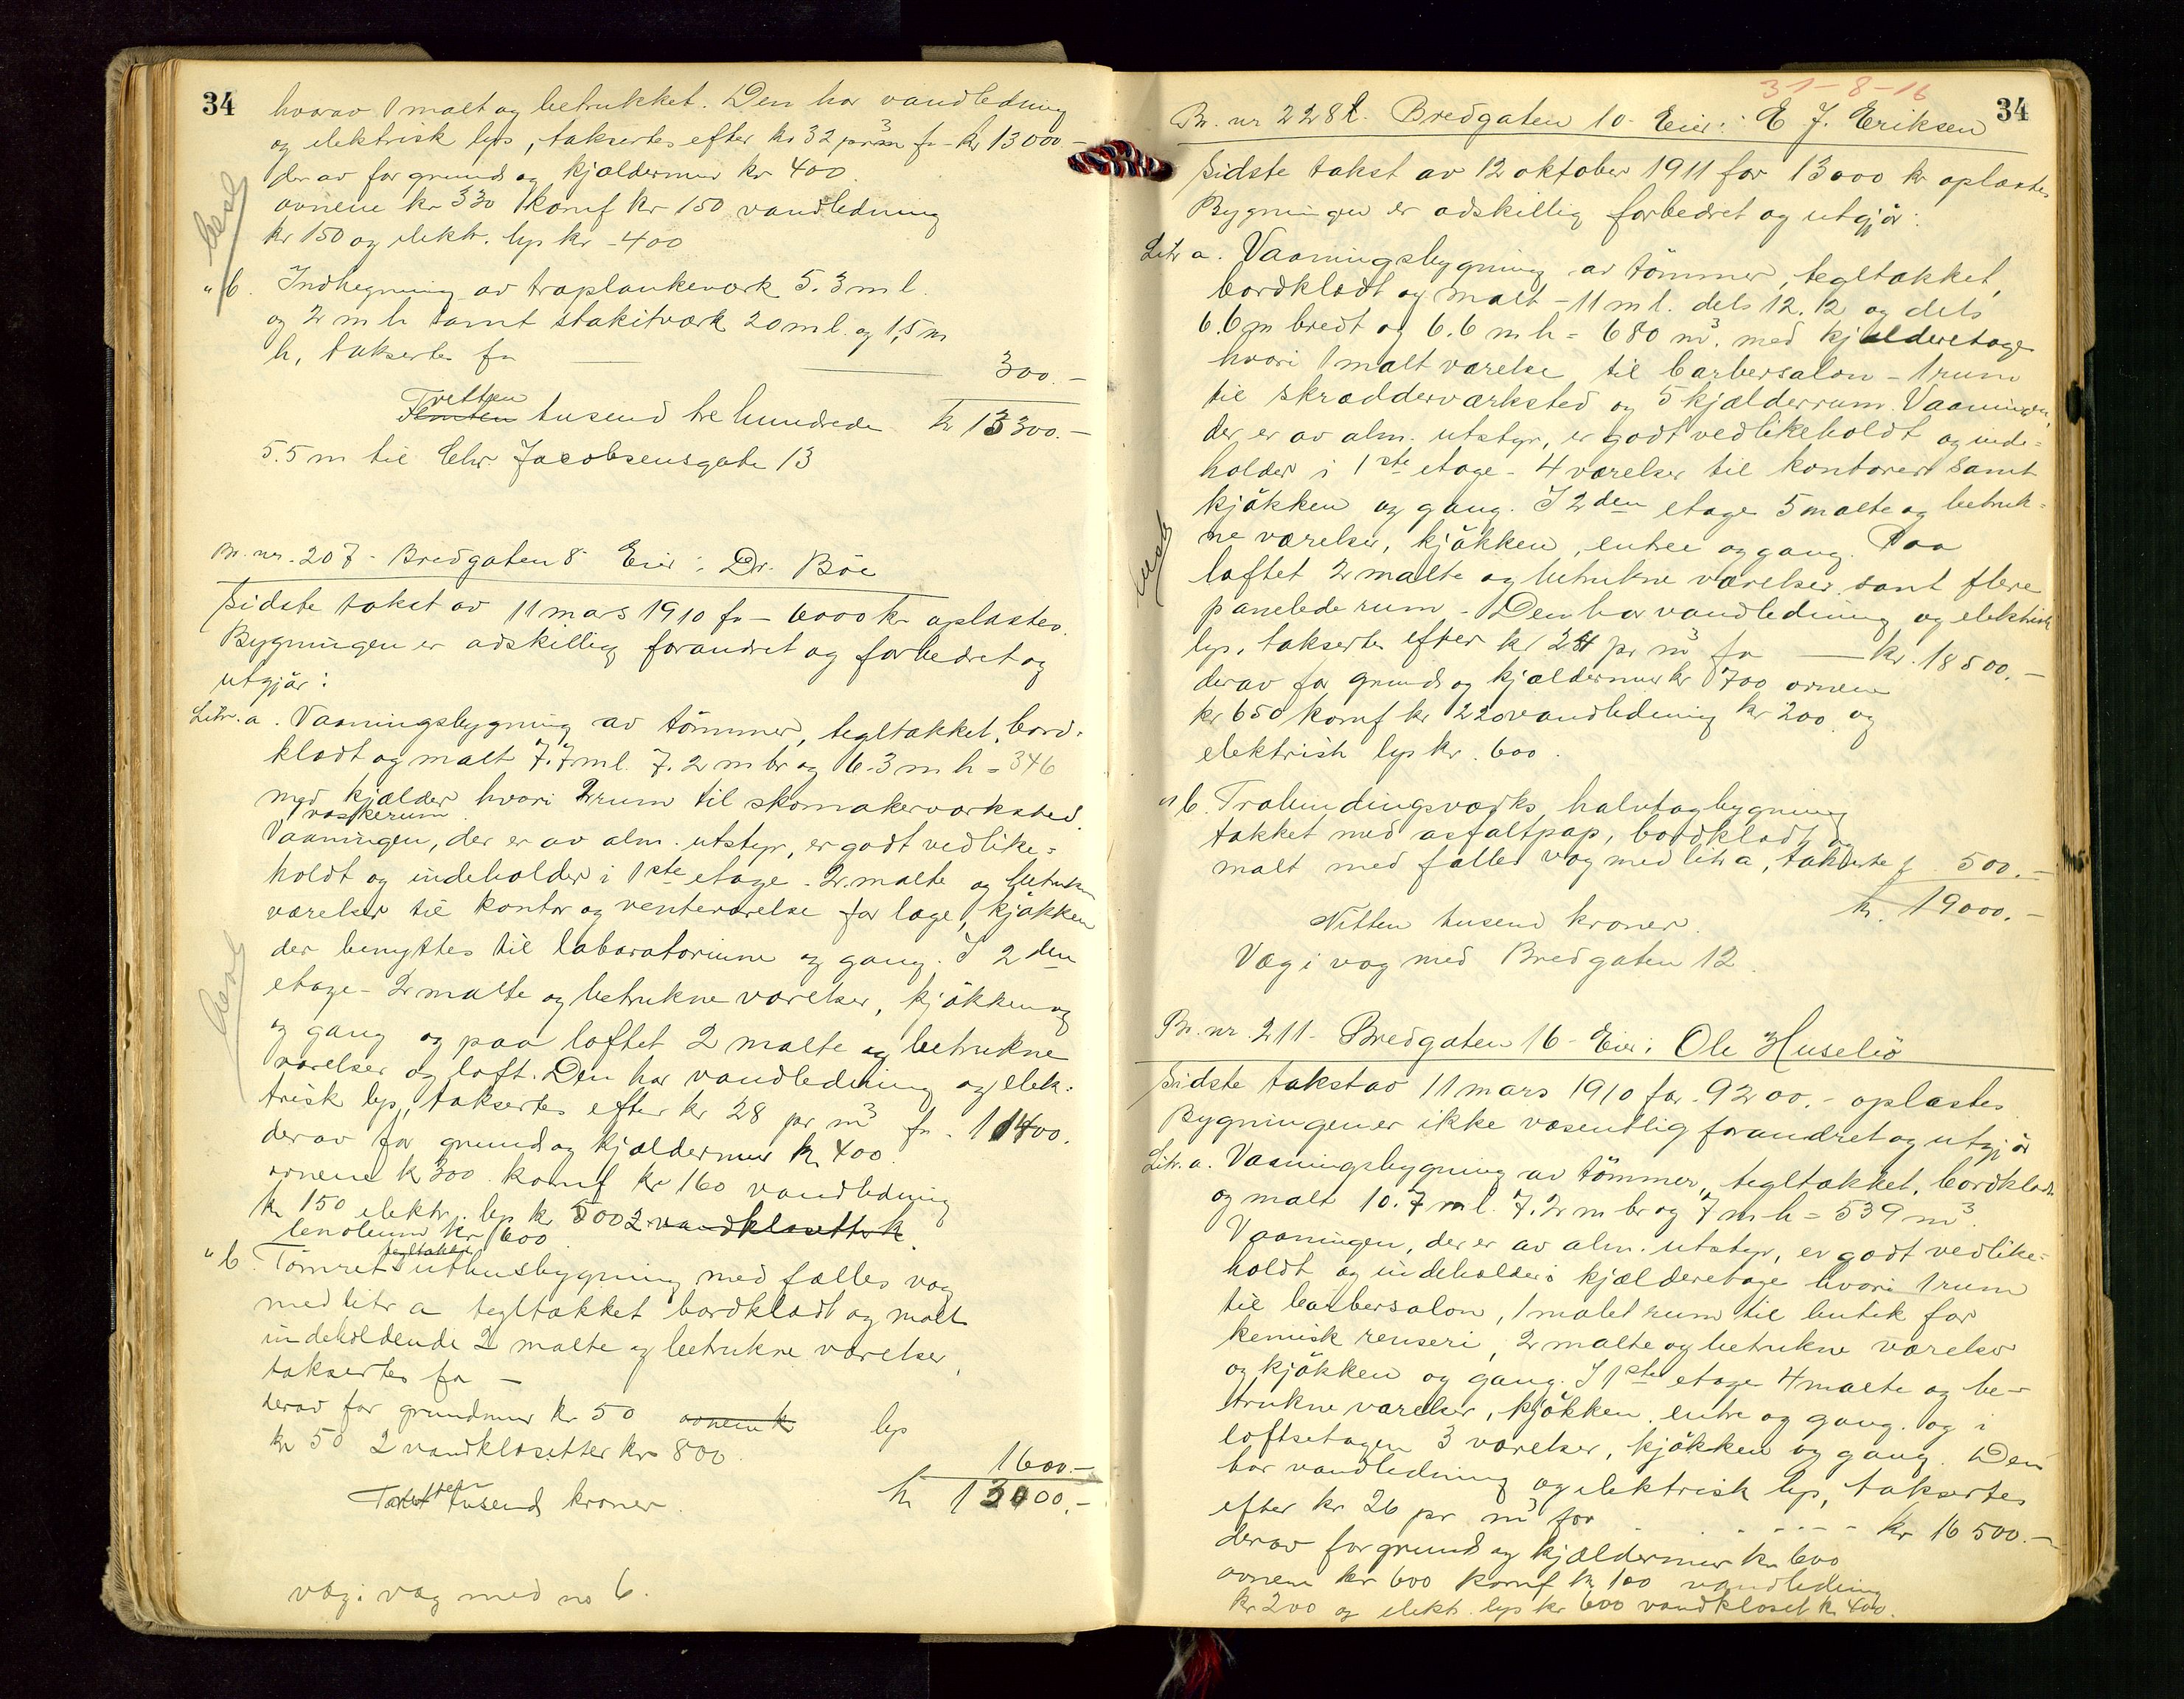 34
hvorav 1 malt og betrukket. Den har vandledning
og elektrisk lys, taksertes efter kr 32 pr m³ for kr 13000.-
derav for grund og kjældermur kr 400.
ovnene kr 330 1 komf kr 150 vandledning
kr 150 og elektr. lys kr - 400
" b. Indhegning av træplankeverk 5.3 m l.
og 2 m h samt stakitværk 20 m l. og 1,5 m
h, taksertes for — 300.-
Tretten
Femten tusend tre hundrede kr 13300.-
5.5 m til Chr. Jacobsensgate 13
Br. nr. 207 - Bredgaten 8 Eier: Dr. Böe
Sidste takst av 11 mars 1910 for - 6000 kr oplæstes.
Bygningen er adskillig forandret og forbedret og
utgjör:
Litr. a. Vaaningsbygning av tömmer, tegltakket, bord-
klædt og malt 7.7 m l. 7.2 m br og 6.3 m h = 346
med kjælder hvori 2 rum til skomakerværksted.
1 vaskerum
Vaaningen, der er av alm. utstyr, er godt vedlike-
holdt og indeholder i 1ste etage - 2 malte og betrukne
værelser til kontor og venteværelse for læge, kjökken
der benyttes til laboratorium og gang. I 2den
etage - 2 malte og betrukne værelser, kjökken og
og gang og paa loftet 2 malte og betrukne
værelser og loft. Den har vandledning og elek-
trisk lys, taksertes efter kr 28 pr m³ for - 11400.
derav for grund og kjældermur kr 400.
ovnene kr 300. komf kr 160 vandledning
kr 150 elektr. lys kr 500 2 vandklosetter kr
lenoleum kr 600
tegltakket
" b. Tömret uthusbygning med fælles væg
med litr a tegltakket bordklædt og malt
indeholdende 2 malte og betrukne værelser,
taksertes for -
derav for grundmur kr 50 ovnene kr lys
kr 50 2 vandklosetter kr 800. 1600.-
Tretten tusend kroner. kr 13000.-
væg i væg med no 6.
31-8-16
34
Br. nr 228 l. Bredgaten 10 - Eier: E J. Eriksen
Sidste takst av 12 oktober 1911 for 13000 kr oplæstes
Bygningen er adskillig forbedret og utgjör:
Litr a. Vaaningsbygning av tömmer, tegltakket,
bordklædt og malt - 11 m l. dels 12.12 og dels
6.6 m bredt og 6.6 m h = 680 m³. med kjælderetage
hvori 1 malt værelse til barbersalon - 1 rum
til skrædderværksted og 5 kjælderrum. Vaaningen,
der er av alm. utstyr, er godt vedlikeholdt og inde-
holder i 1ste etage - 4 værelser til kontorer samt
kjökken og gang. I 2den etage 5 malte og betruk-
ne værelser, kjökken, entree og gang. Paa
loftet 2 malte og betrukne værelser samt flere
panelede rum - Den har vandledning og elektrisk
lys, taksertes efter kr 28 pr m³ for — kr. 18500.-
derav for grund og kjældermur kr 700 ovnene
kr 650 komf kr 220 vandledning kr 200 og
elektrisk lys kr. 600.
" b. Træbindingsværks halvtagbygning
takket med asfaltpap, bordklædt og
malt med fælles væg med litr a, takserte f 500.-
Nitten tusend kroner. kr. 19000.-
Væg i væg med Bredgaten 12.
Br. nr. 211 - Bredgaten 16 - Eier: Ole Huseliö
Sidste takst av 11 mars 1910 for - 9200.- oplæstes
Bygningen er ikke væsentlig forandret og utgjör
Litr. a. Vaaningsbygning av tömmer, tegltakket, bordklædt
og malt 10.7 m l. 7.2 m br og 7 m h = 539 m³.
Vaaningen, der er av alm. utstyr, er godt vedlike-
holdt og indeholder i kjælderetage hvori 1 rum
til barbersalon, 1 malet rum til butik for
kemisk renseri, 2 malte og betrukne værelser
og kjökken og gang. I 1ste etage 4 malte og be-
trukne værelser, kjökken, entre og gang. og i
loftsetagen 3 værelser, kjökken og gang. Den
har vandledning og elektrisk lys, taksertes
efter kr 26 pr m³ for - - - - kr 16500.-
derav for grund og kjældermur kr 600
ovnene kr 600 komf kr 100 vandledning
kr 200 og elektr. lys kr 600 vandkloset kr 400.